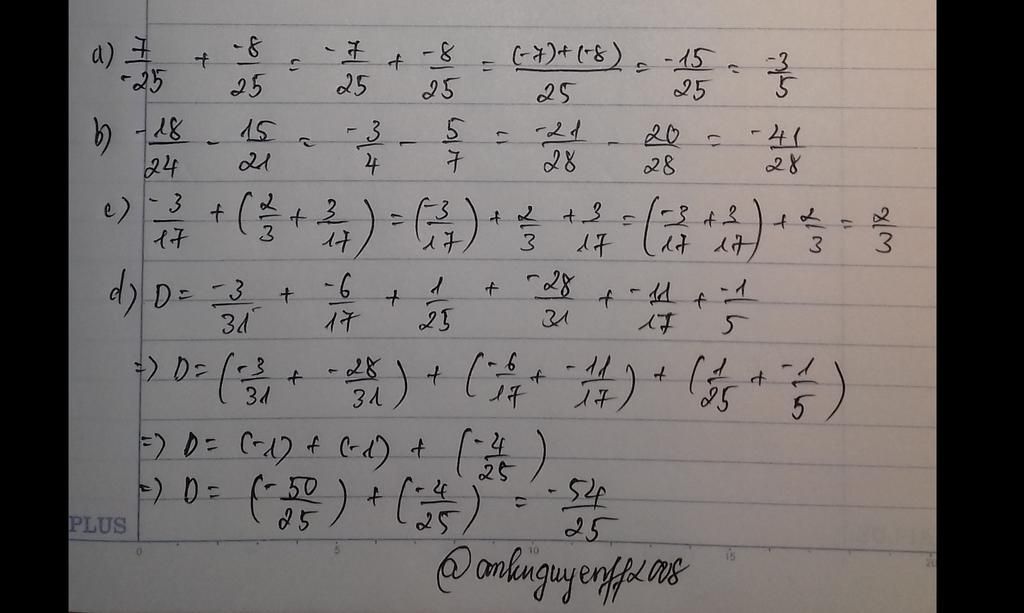 a) 7/-25 + -8/25 = -7/25 + -8/25 = (-7)+(-8)/25 = -15/25 = -3/5
b) -18/24 - 15/21 = -3/4 - 5/7 = -21/28 - 20/28 = -41/28
c) -3/17 + (2/3 + 3/17) = (-3/17) + 2/3 + 3/17 = (-3/17 + 3/17) + 2/3 = 2/3
d) D = -3/31 + -6/17 + 1/25 + -28/31 + -11/17 + -1/5
=> D = (-3/31 + -28/31) + (-6/17 + -11/17) + (1/25 + -1/5)
=> D = (-1) + (-1) + (-4/25)
=> D = (-50/25) + (-4/25) = -54/25
PLUS
0 5 10 15 20